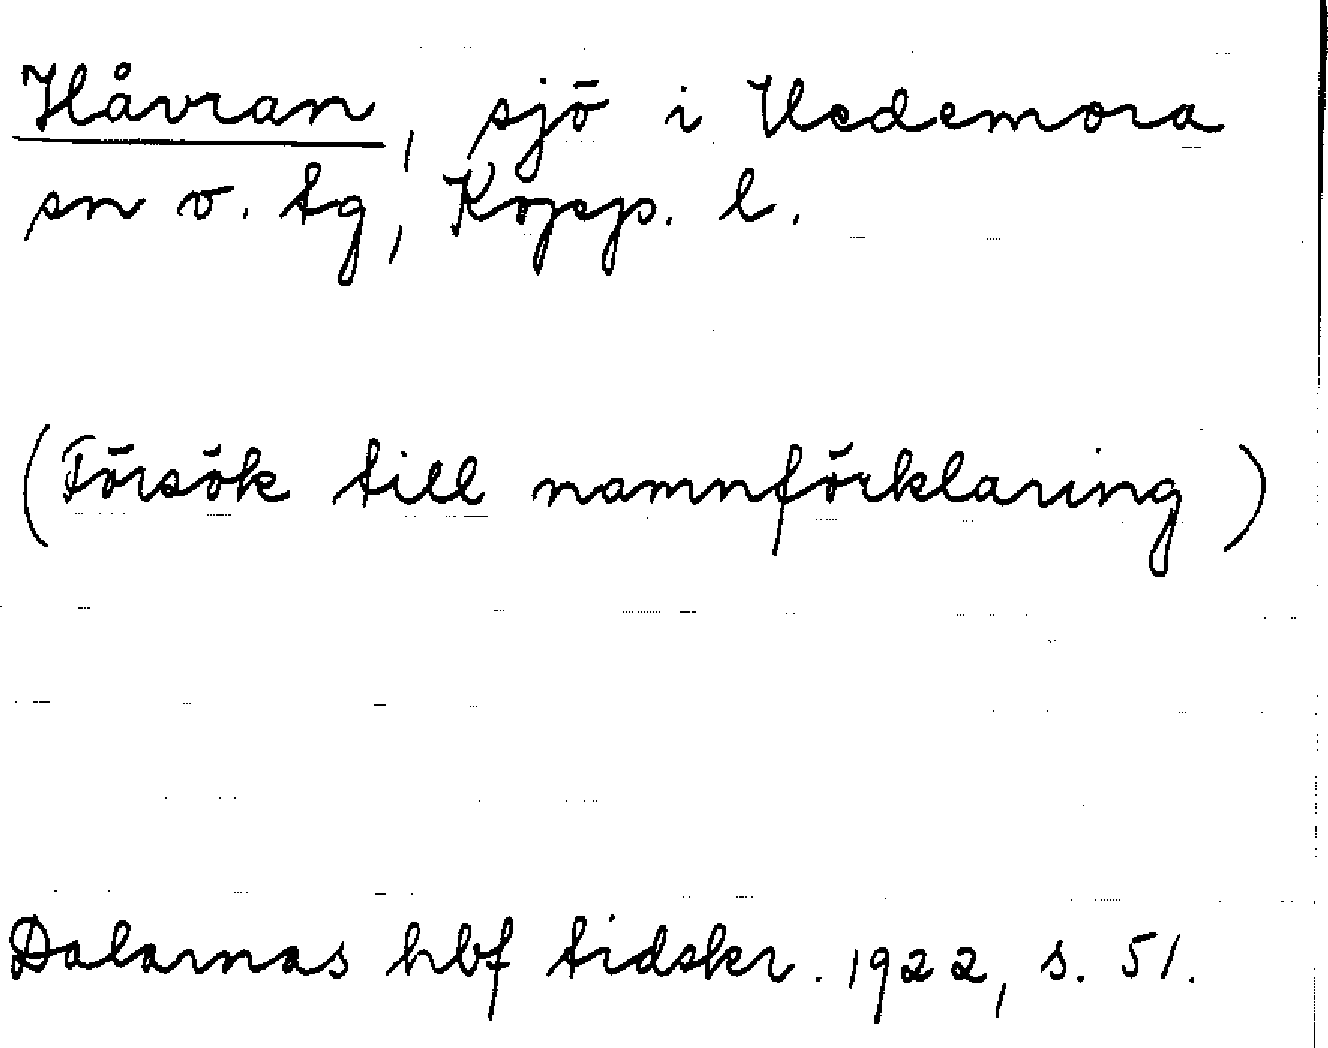 Håvran, sjö i Vedemora
sn v. tg, Kopp. l.
(Försök till namnförklaring)
Dalarnas hbf tidskr. 1922, s. 51.